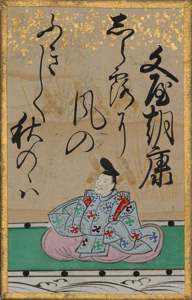 文屋朝康
志ら露に
風の
ふきしく秋のゝハ